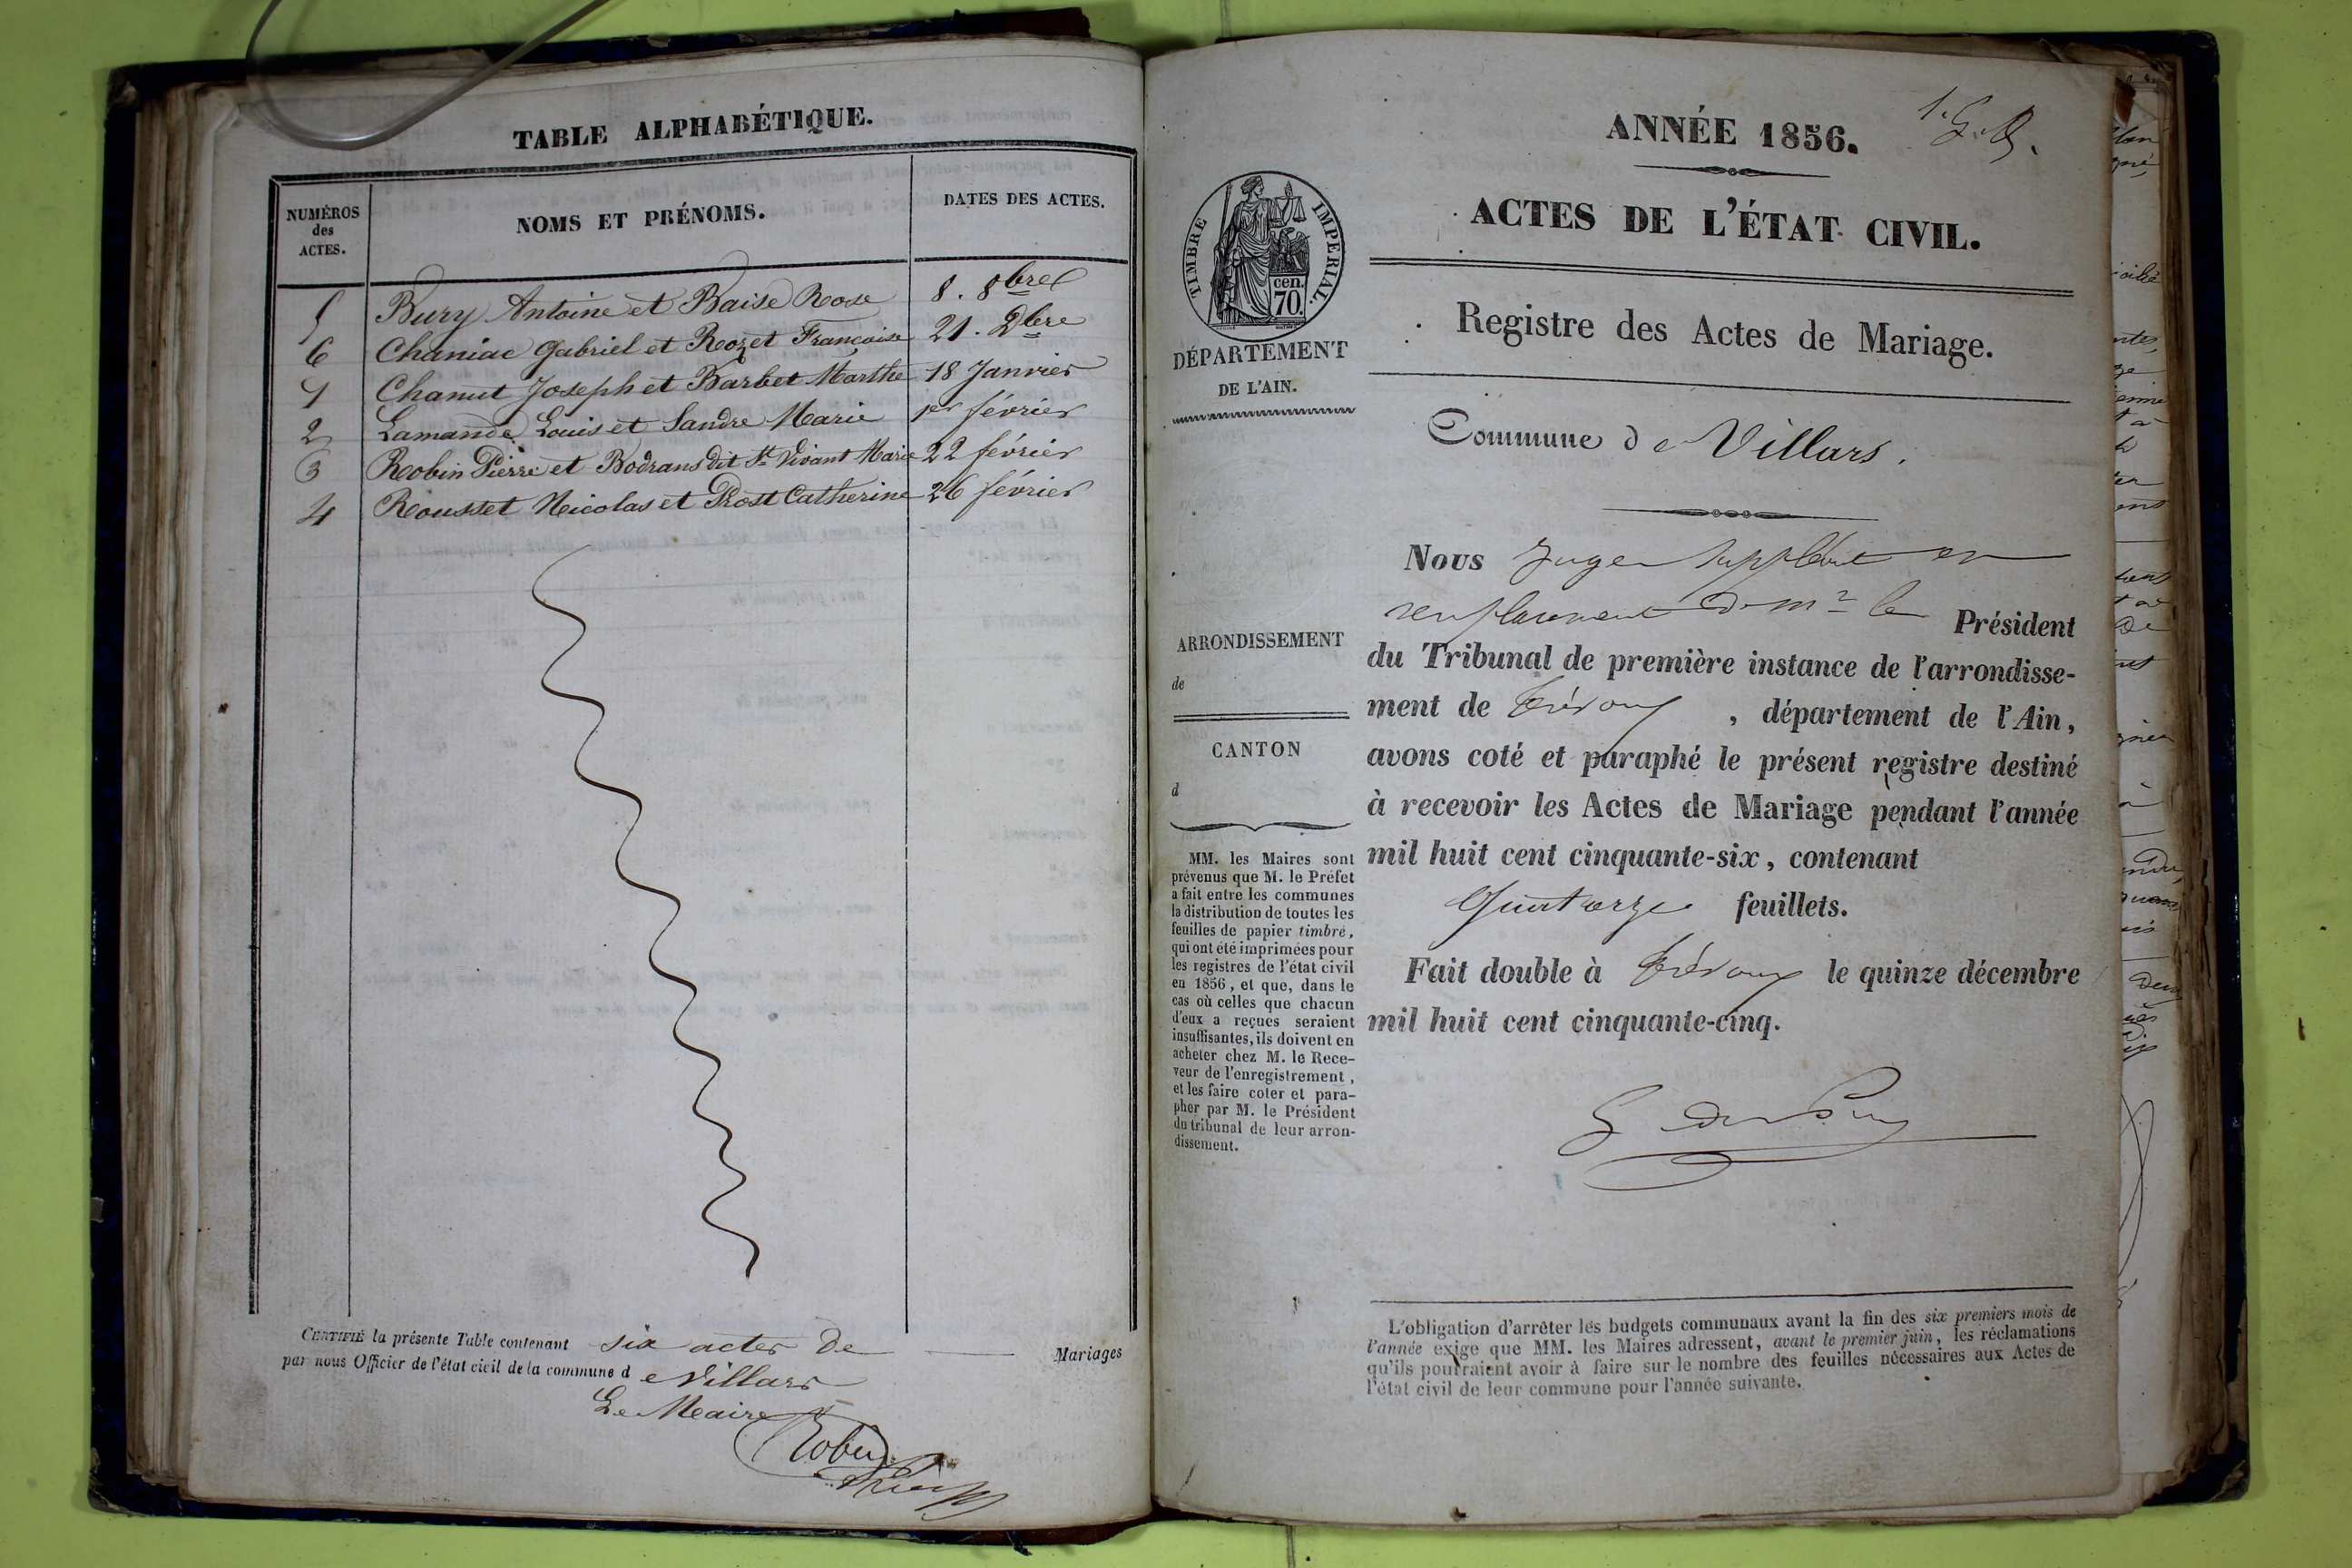 TABLE ALPHABÉTIQUE.
NUMÉROS
des
ACTES.
NOMS ET PRÉNOMS.
DATES DES ACTES.
5 Bury Antoine et Baise Rose 8. 8bre
6 Chaniac Gabriel et Rozet Françoise 21. 9bre
1 Chanut Joseph et Barbet Marthe 18 Janvier
2 Lamande Louis et Sandre Marie 1er février
3 Robin Pierre et Bodrans dit St Vivant Marie 22 février
4 Rousset Nicolas et Prost Catherine 26 février
CERTIFIÉ la présente Table contenant six actes de Mariages
par nous Officier de l'état civil de la commune de Villars
Le Maire
ANNÉE 1856.
ACTES DE L'ÉTAT CIVIL.
TIMBRE IMPERIAL.
cen.
70.
DÉPARTEMENT
DE L'AIN.
Registre des Actes de Mariage.
Commune de Villars.
ARRONDISSEMENT
de
CANTON
d
MM. les Maires sont
prévenus que M. le Préfet
a fait entre les communes
la distribution de toutes les
feuilles de papier timbré,
qui ont été imprimées pour
les registres de l'état civil
en 1856, et que, dans le
cas où celles que chacun
d'eux a reçues seraient
insuffisantes, ils doivent en
acheter chez M. le Rece-
veur de l'enregistrement,
et les faire coter et para-
pher par M. le Président
du tribunal de leur arron-
dissement.
Nous Juge suppléant en
remplacement de Mr le Président
du Tribunal de première instance de l'arrondisse-
ment de Trévoux, département de l'Ain,
avons coté et paraphé le présent registre destiné
à recevoir les Actes de Mariage pendant l'année
mil huit cent cinquante-six, contenant
feuillets.
Fait double à Trévoux le quinze décembre
mil huit cent cinquante-cinq.
L'obligation d'arrêter les budgets communaux avant la fin des six premiers mois de
l'année exige que MM. les Maires adressent, avant le premier juin, les réclamations
qu'ils pourraient avoir à faire sur le nombre des feuilles nécessaires aux Actes de
l'état civil de leur commune pour l'année suivante.